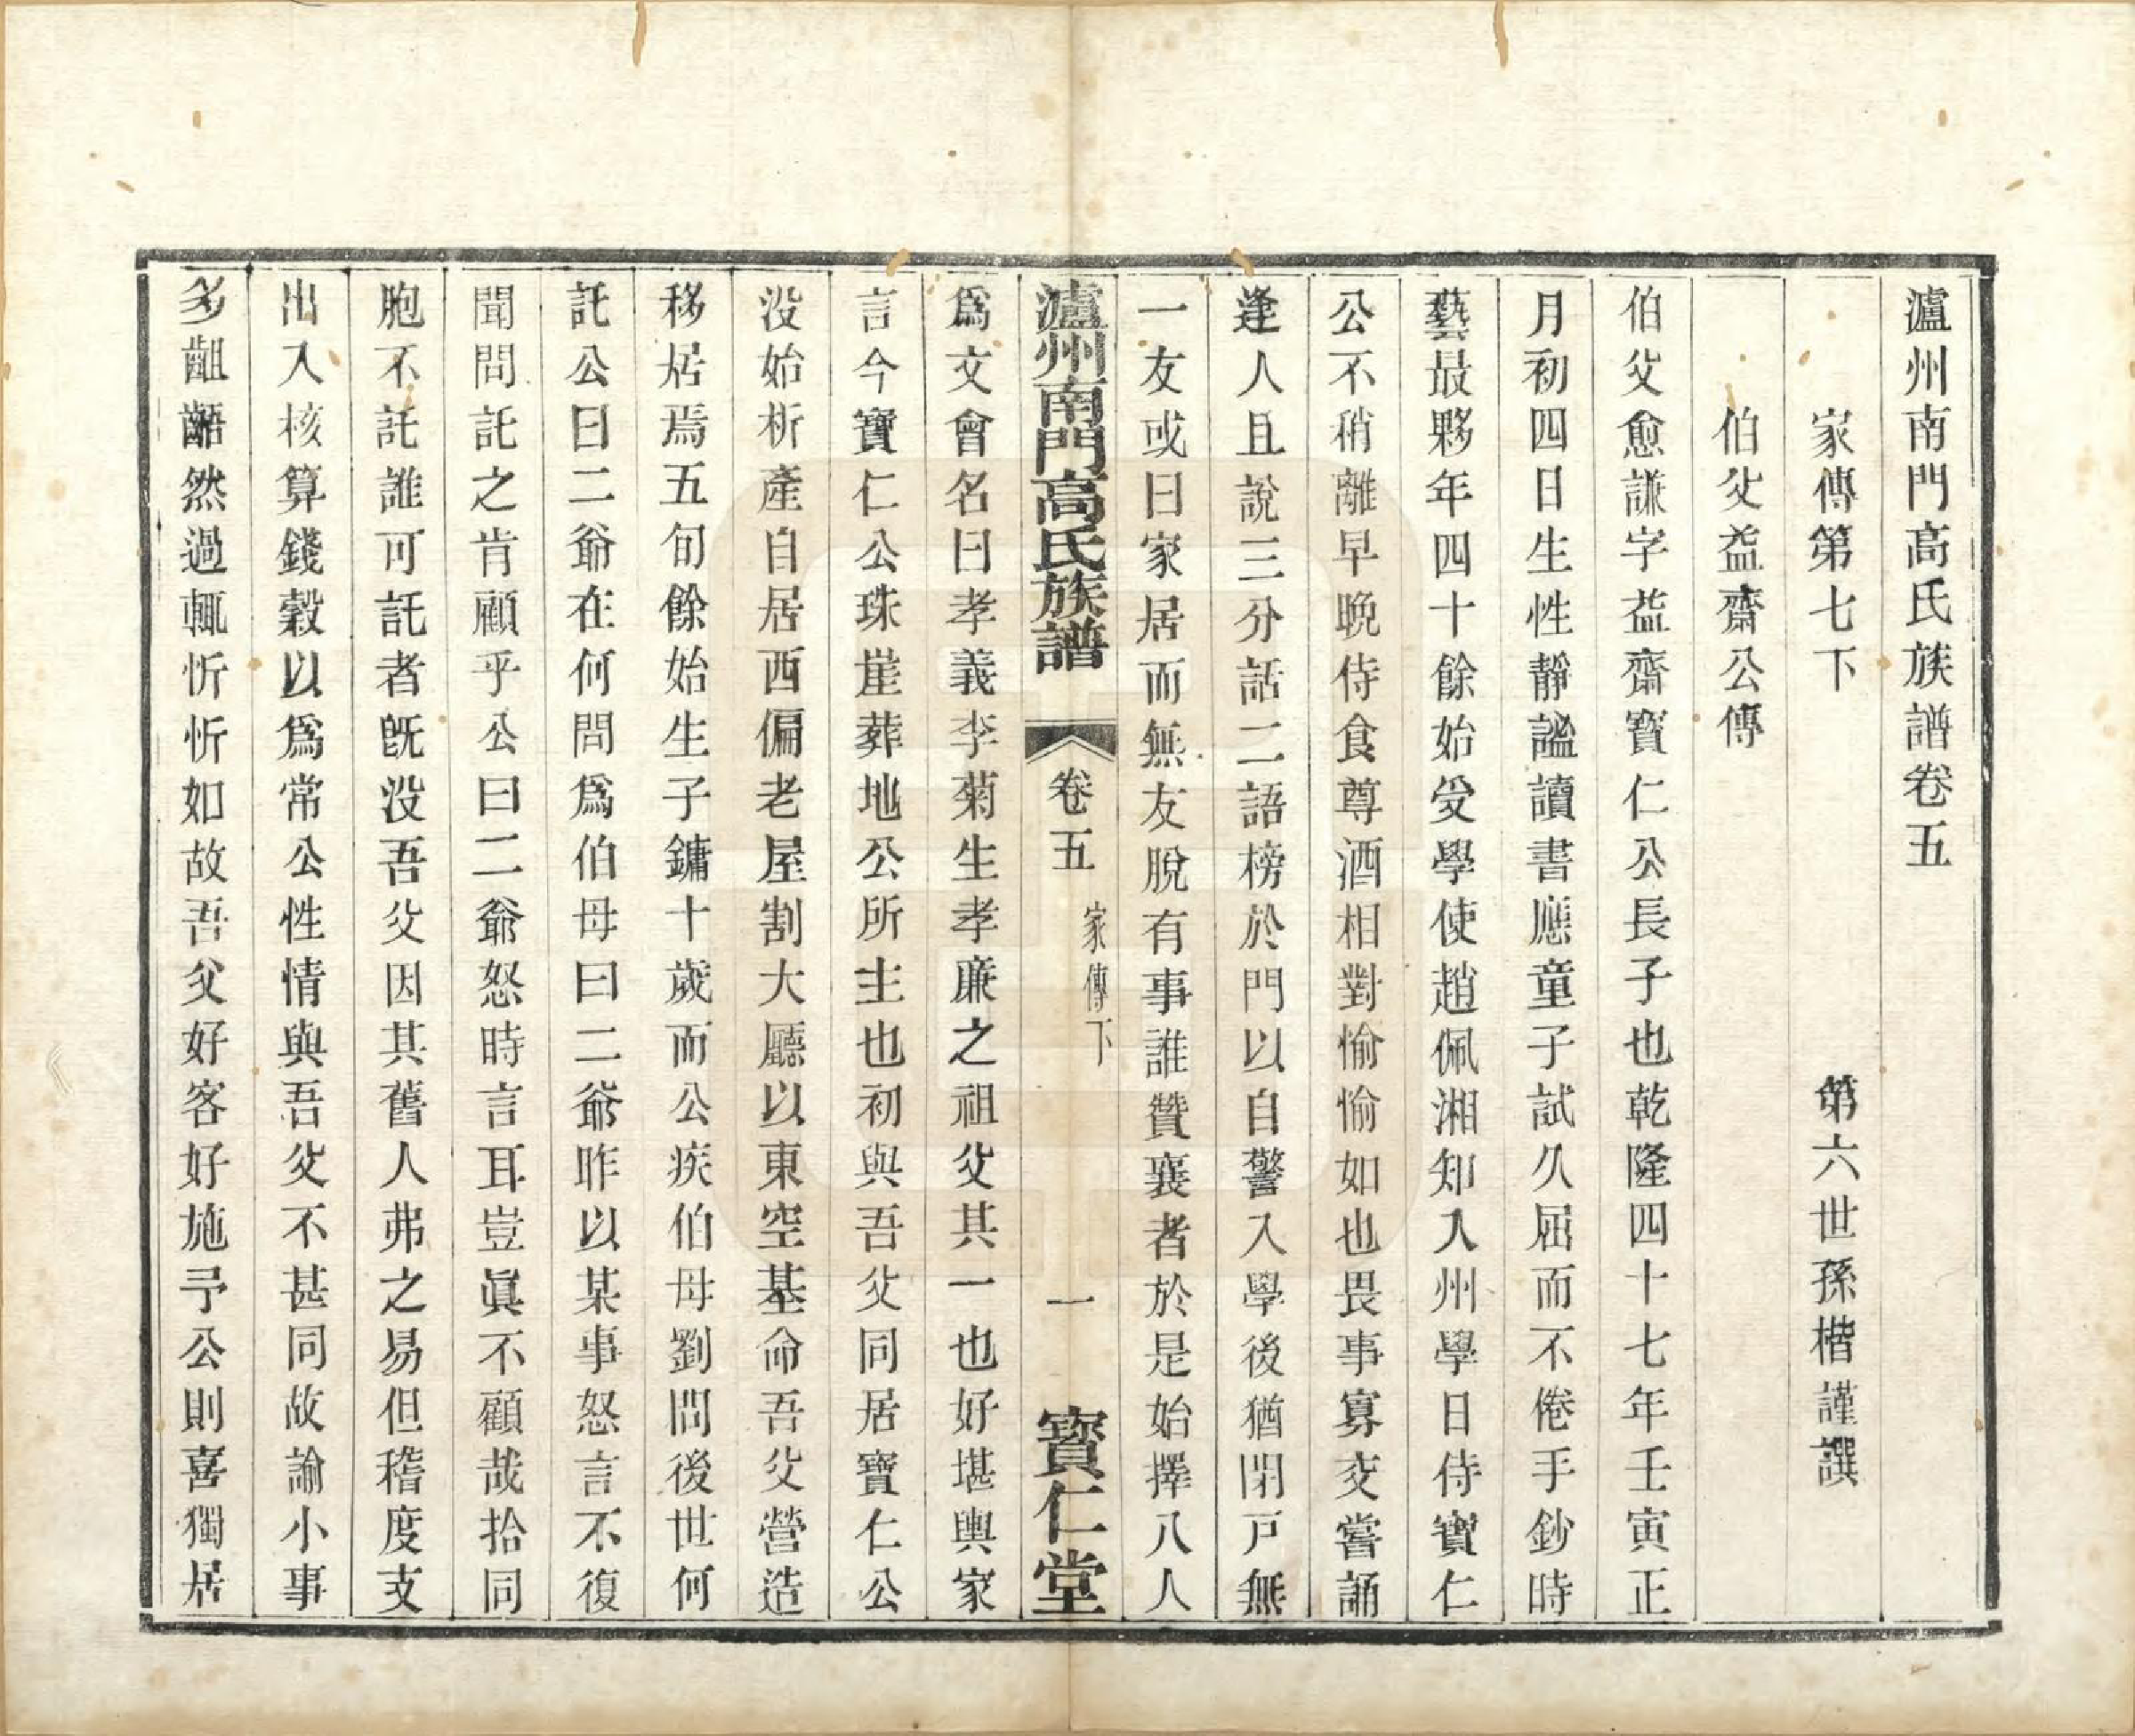 瀘州南門高氏族譜卷五
家傳第七下　第六世孫楷謹譔
伯父益齋公傳
伯父愈謙字益齋寶仁公長子也乾隆四十七年壬寅正
月初四日生性靜謐讀書應童子試久屈而不倦手鈔時
藝最夥年四十餘始受學使趙佩湘知入州學日侍寶仁
公不稍離早晚侍食尊酒相對愉愉如也畏事寡交嘗誦
逢人且說三分話二語榜於門以自警入學後猶閉戸無
一友或曰家居而無友脫有事誰贊襄者於是始擇八人
瀘州南門高氏族譜　卷五　家傳下　一　寶仁堂
爲文會名曰孝義李菊生孝廉之祖父其一也好堪輿家
言今寶仁公珠崖葬地公所主也初與吾父同居寶仁公
没始析產自居西偏老屋割大廳以東空基命吾父營造
移居焉五旬餘始生子鏞十歲而公疾伯母劉問後世何
託公曰二爺在何問爲伯母曰二爺昨以某事怒言不復
聞問託之肯顧乎公曰二爺怒時言耳豈眞不顧哉拾同
胞不託誰可託者既没吾父因其舊人弗之易但稽度支
出入核算錢穀以爲常公性情與吾父不甚同故論小事
多齟齬然過輒忻忻如故吾父好客好施予公則喜獨居